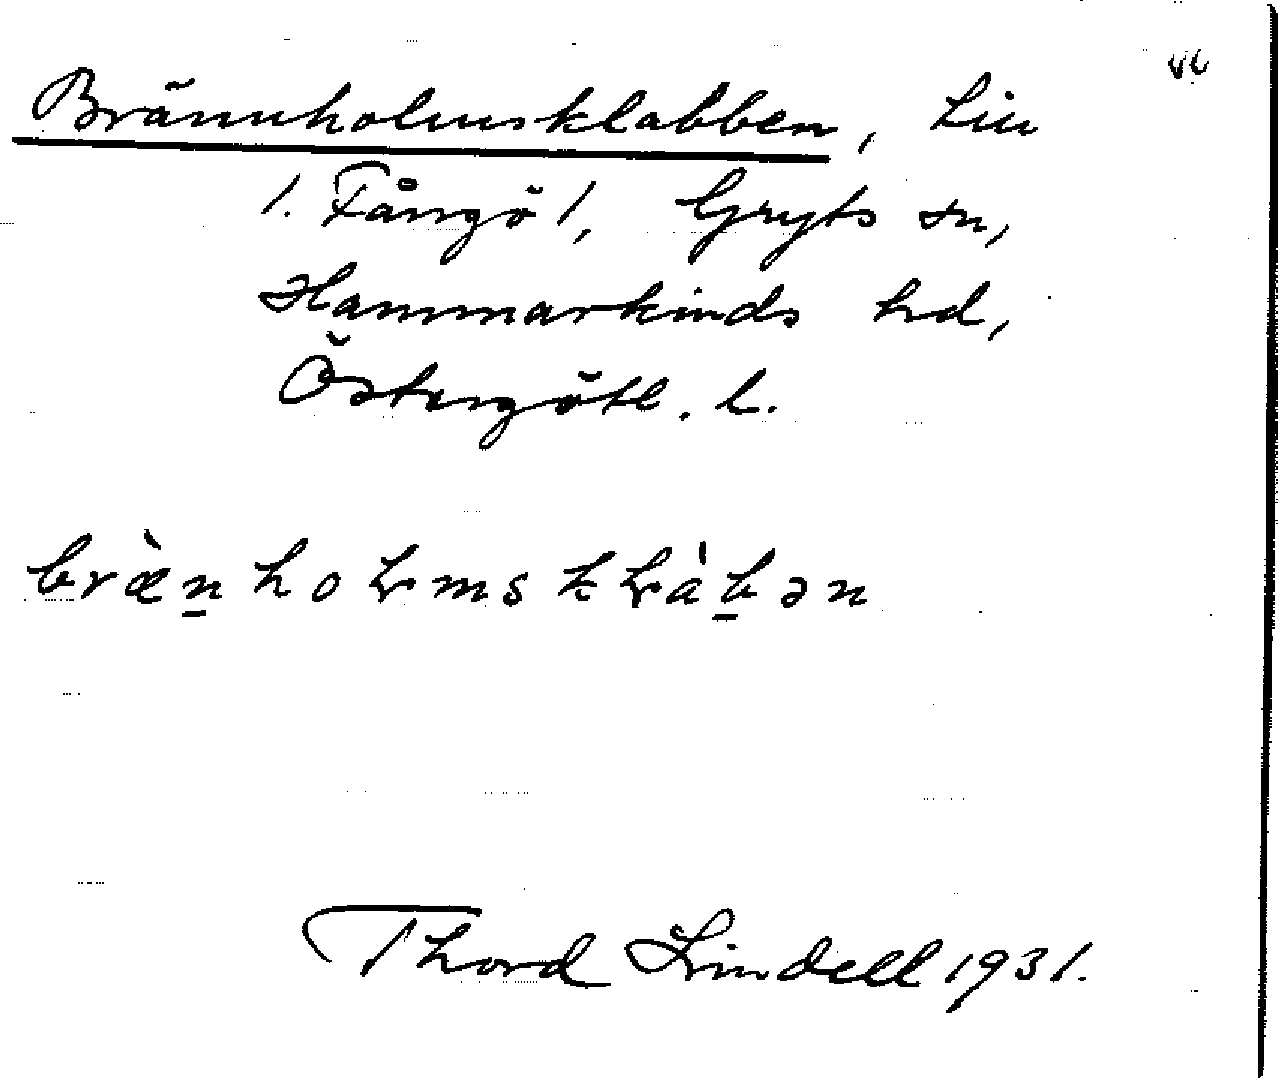 Brännholmsklabben, Lin
/. Fångö /, Gryts sn,
Hammarkinds hd,
Östergötl. l.
bræ̀n̲holmsklàb̲ən
Thord Lindell 1931.